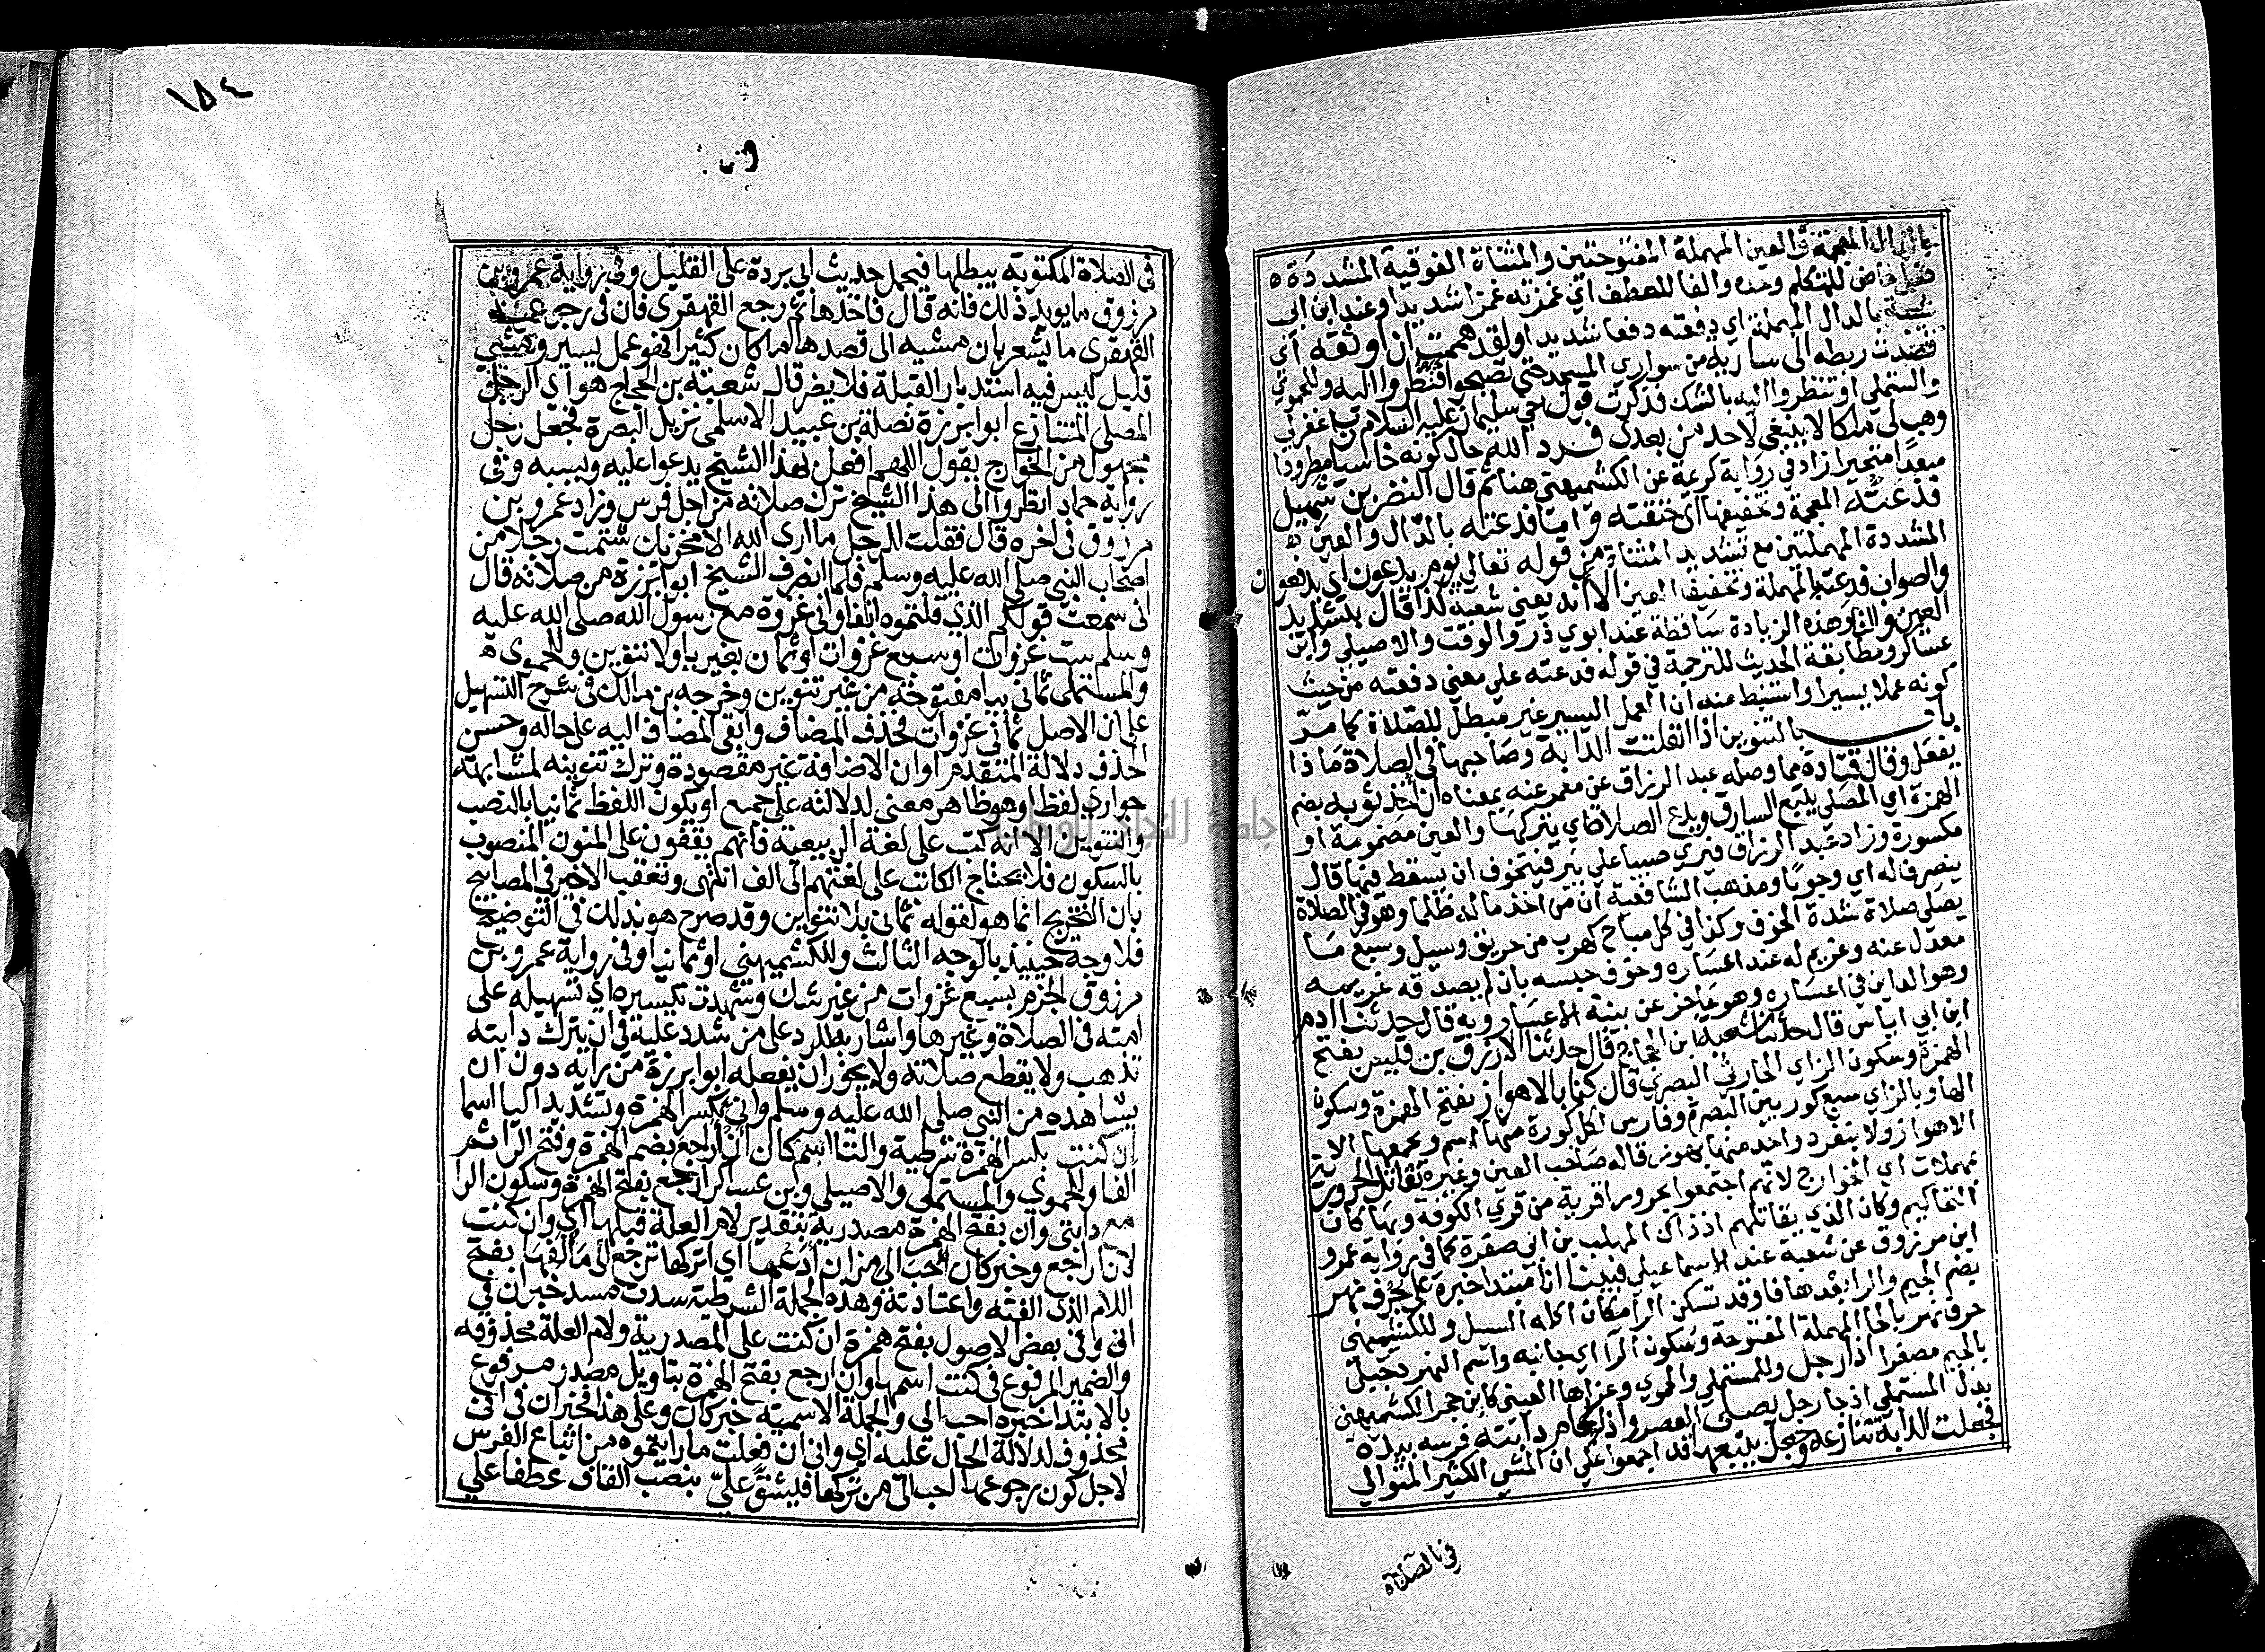 بالذال المعجمة والعين المهملة المفتوحتين والمثناة الفوقية المشددة
فعل ماض للمتكلم وحده والفا للعطف اي غمزته غمزا شديدا وعند ابن ابي
شيبة بالدال المهملة اي دفعته دفعا شديدا ولقد هممت ان اوثقه اي
قصدت ربطه الى سارية من سواري المسجد حتى تصبحوا فتنظروا اليه وللحموي
والمستملي او تنظروا اليه بالشك فذكرت قول اخي سليمان عليه السلام رب اغفر لي
وهب لي ملكا لا ينبغي لاحد من بعدي فرده الله حال كونه خاسيا مطرودا
مبعدا متحيرا زاد في رواية كريمة عن الكشميهني هنا ثم قال النضر بن شميل
فذعته المعجمة وتخفيفها اي خنقته واما فدعته بالدال والعين
المشددة المهملتين مع تشديد المثناة من قوله تعالى يوم يدعون اي يدفعون
والصواب فدعته المهملة وتخفيف العين الا انه يعني شعبة كذا قال بتشديد
العين والتا وهذه الزيادة ساقطة عند ابوي ذر والوقت والاصيلي وابن
عساكر ومطابقة الحديث للترجمة في قوله فدعته على معنى دفعته من حيث
كونه عملا يسيرا واستنبط منه ان العمل اليسير غير مبطل للصلاة كما مر
باب بالتنوين اذا انفلتت الدابة وصاحبها في الصلاة ماذا
يفعل وقال قتادة مما وصله عبد الرزاق عن معمر عنه بمعناه ان اخذ ثوبه بضم
الهمزة اي المصلي يتبع السارق ويدع الصلاة اي يتركها والعين مضمومة او
مكسورة وزاد عبد الرزاق فيري صبيا على بير فيتخوف ان يسقط فيها قال
ينصرف له اي وجوبا ومذهب الشافعية ان من اخذ ماله ظلما وهو في الصلاة
يصلي صلاة شدة الخوف وكذا في كل مباح كهرب من حريق وسيل وسبع ما
معدل عنه وغريم له عند اعساره وخوف حبسه بان لم يصدقه غريمه
وهو الداين في اعساره وهو عاجز عن بينة الاعسار وبه قال حدثنا ادم
ابن ابي اياس قال حدثنا شعبة ابن الحجاج قال حدثنا الازرق بن قيس بفتح
الهمزة وسكون الزاي الحارثي البصري قال كنا بالاهواز بفتح الهمزة وسكون
الها وبالزاي سبع كور بين البصرة وفارس لكل كورة منها اسم ويجمعها
الاهواز ولا ينفرد واحد منها بهوز قاله صاحب العين وغيره نقاتل الحرورية
بمهملات اي الخوارج لانهم اجتمعوا بحرورا قرية من قرى الكوفة وبها كان
التحاكيم وكان الذي يقاتلهم اذ ذاك المهلب بن ابي صفرة كما في رواية عمرو
ابن مرزوق عن شعبة عند الاسماعيلي فبينا انا مبتدا خبره على جرف نهر
بضم الجيم والرا بعدها فا وقد تسكن الرا مكان اكله السيل وللكشميهني
حرف نهر بالحا المهملة المفتوحة وسكون الرا اي جانبه واسم النهر دجيل
بالجيم مصغرا اذا رجل وللمستملي والحموي وعزاها العيني كابن حجر للكشميهني
بدل المستملي اذ جا رجل يصلي العصر واذا لجام دابته فرسه بيده
فجعلت الدابة تنازعه وجعل يتبعها قد اجمعوا على ان المشي الكثير المتوالي
في الصلاة
١٥٤
في الصلاة المكتوبة يبطلها فيحمل حديث ابي بردة على القليل وفي رواية عمرو بن
مرزوق ما يويد ذلك فانه قال فاخذها ثم رجع القهقرى فان في رجوعه
القهقرى ما يشعر بان مشيه الى قصدها ما كان كثيرا فهو عمل يسير ومشي
قليل ليس فيه استدبار القبلة فلا يضر قال شعبة بن الحجاج هو اي الرجل
المصلي المتنازع ابو برزة نضلة بن عبيد الاسلمي نزيل البصرة فجعل رجل
مجهول من الخوارج يقول اللهم افعل بهذا الشيخ يدعوا عليه ويسبه وفي
رواية حماد انظروا الى هذا الشيخ ترك صلاته من اجل فرس وزاد عمرو بن
مرزوق في اخره قال فقلت للرجل ما ارى الله الا مخزيك شتمت رجلا من
اصحاب النبي صلى الله عليه وسلم فلما انصرف الشيخ ابو برزة من صلاته قال
اني سمعت قولكم الذي قلتموه انفا واني غزوة مع رسول الله صلى الله عليه
وسلم ست غزوات او سبع غزوات او ثمان بغير يا ولا تنوين وللحموي
والمستملي ثماني بيا مفتوحة من غير تنوين وخرجه بن مالك في شرح التسهيل
على ان الاصل ثماني غزوات فحذف المضاف وابقى المضاف اليه على حاله وحسن
الحذف دلالة المتقدم او ان الاضافة غير مقصودة وترك تنوينه لمشابهته
جواري لفظا وهو ظاهر معنى لدلالته على جمع او يكون اللفظ ثمانيا بالنصب
والتنوين الا انه كتب على لغة الربيعية فانهم يقفون على المنون المنصوب
بالسكون فلا يحتاج الكاتب على لغتهم الى الف انتهى وتعقب الاخير في المصابيح
بان التخريج انما هو لقوله ثماني بلا تنوين وقد صرح هو بذلك في التوضيح
فلا وجه حينيذ بالوجه الثالث وللكشميهني او ثمانيا وفي رواية عمرو بن
مرزوق الجزم بسبع غزوات من غير شك وشهدت تيسيره اي تسهيله على
امته في الصلاة وغيرها واشار به للرد على من شدد عليه في ان يترك دابته
تذهب ولا يقطع صلاته ولا يجوز ان يفعله ابو برزة من رايه دون ان
يشاهده من النبي صلى الله عليه وسلم واني بكسر الهمزة وتشديد اليا اسما
ان كنت بكسر الهمزة شرطية والتا اسم كان ان اراجع بضم الهمزة وفتح الرا ثم
الف وللحموي والمستملي والاصيلي وابن عساكر ارجع بفتح الهمزة وسكون الرا
مع دابتي وان بفتح الهمزة مصدرية بتقدير لام العلة قبلها اي وان كنت
لان اراجع وخبر كان احب الي من ان ادعها اي اتركها ترجع الى مالفها بفتح
اللام الذي الفته واعتادته وهذه الجملة الشرطية سدت مسد خبر ان في
اني وفي بعض الاصول بفتح همزة ان كنت على المصدرية ولام العلة محذوفه
والضمير المرفوع في كنت اسمها وان ارجع بفتح الهمزة بتاويل مصدر مرفوع
بالابتدا خبره احب الي والجملة الاسمية خبر كان وعلى هذا فخبر ان في اني
محذوف لدلالة الحال عليه اي واني ان فعلت ما رايتموه من اتباع الفرس
لاجل كون رجوعها احب الي من تركها فيشق علي بنصب القاف عطفا على